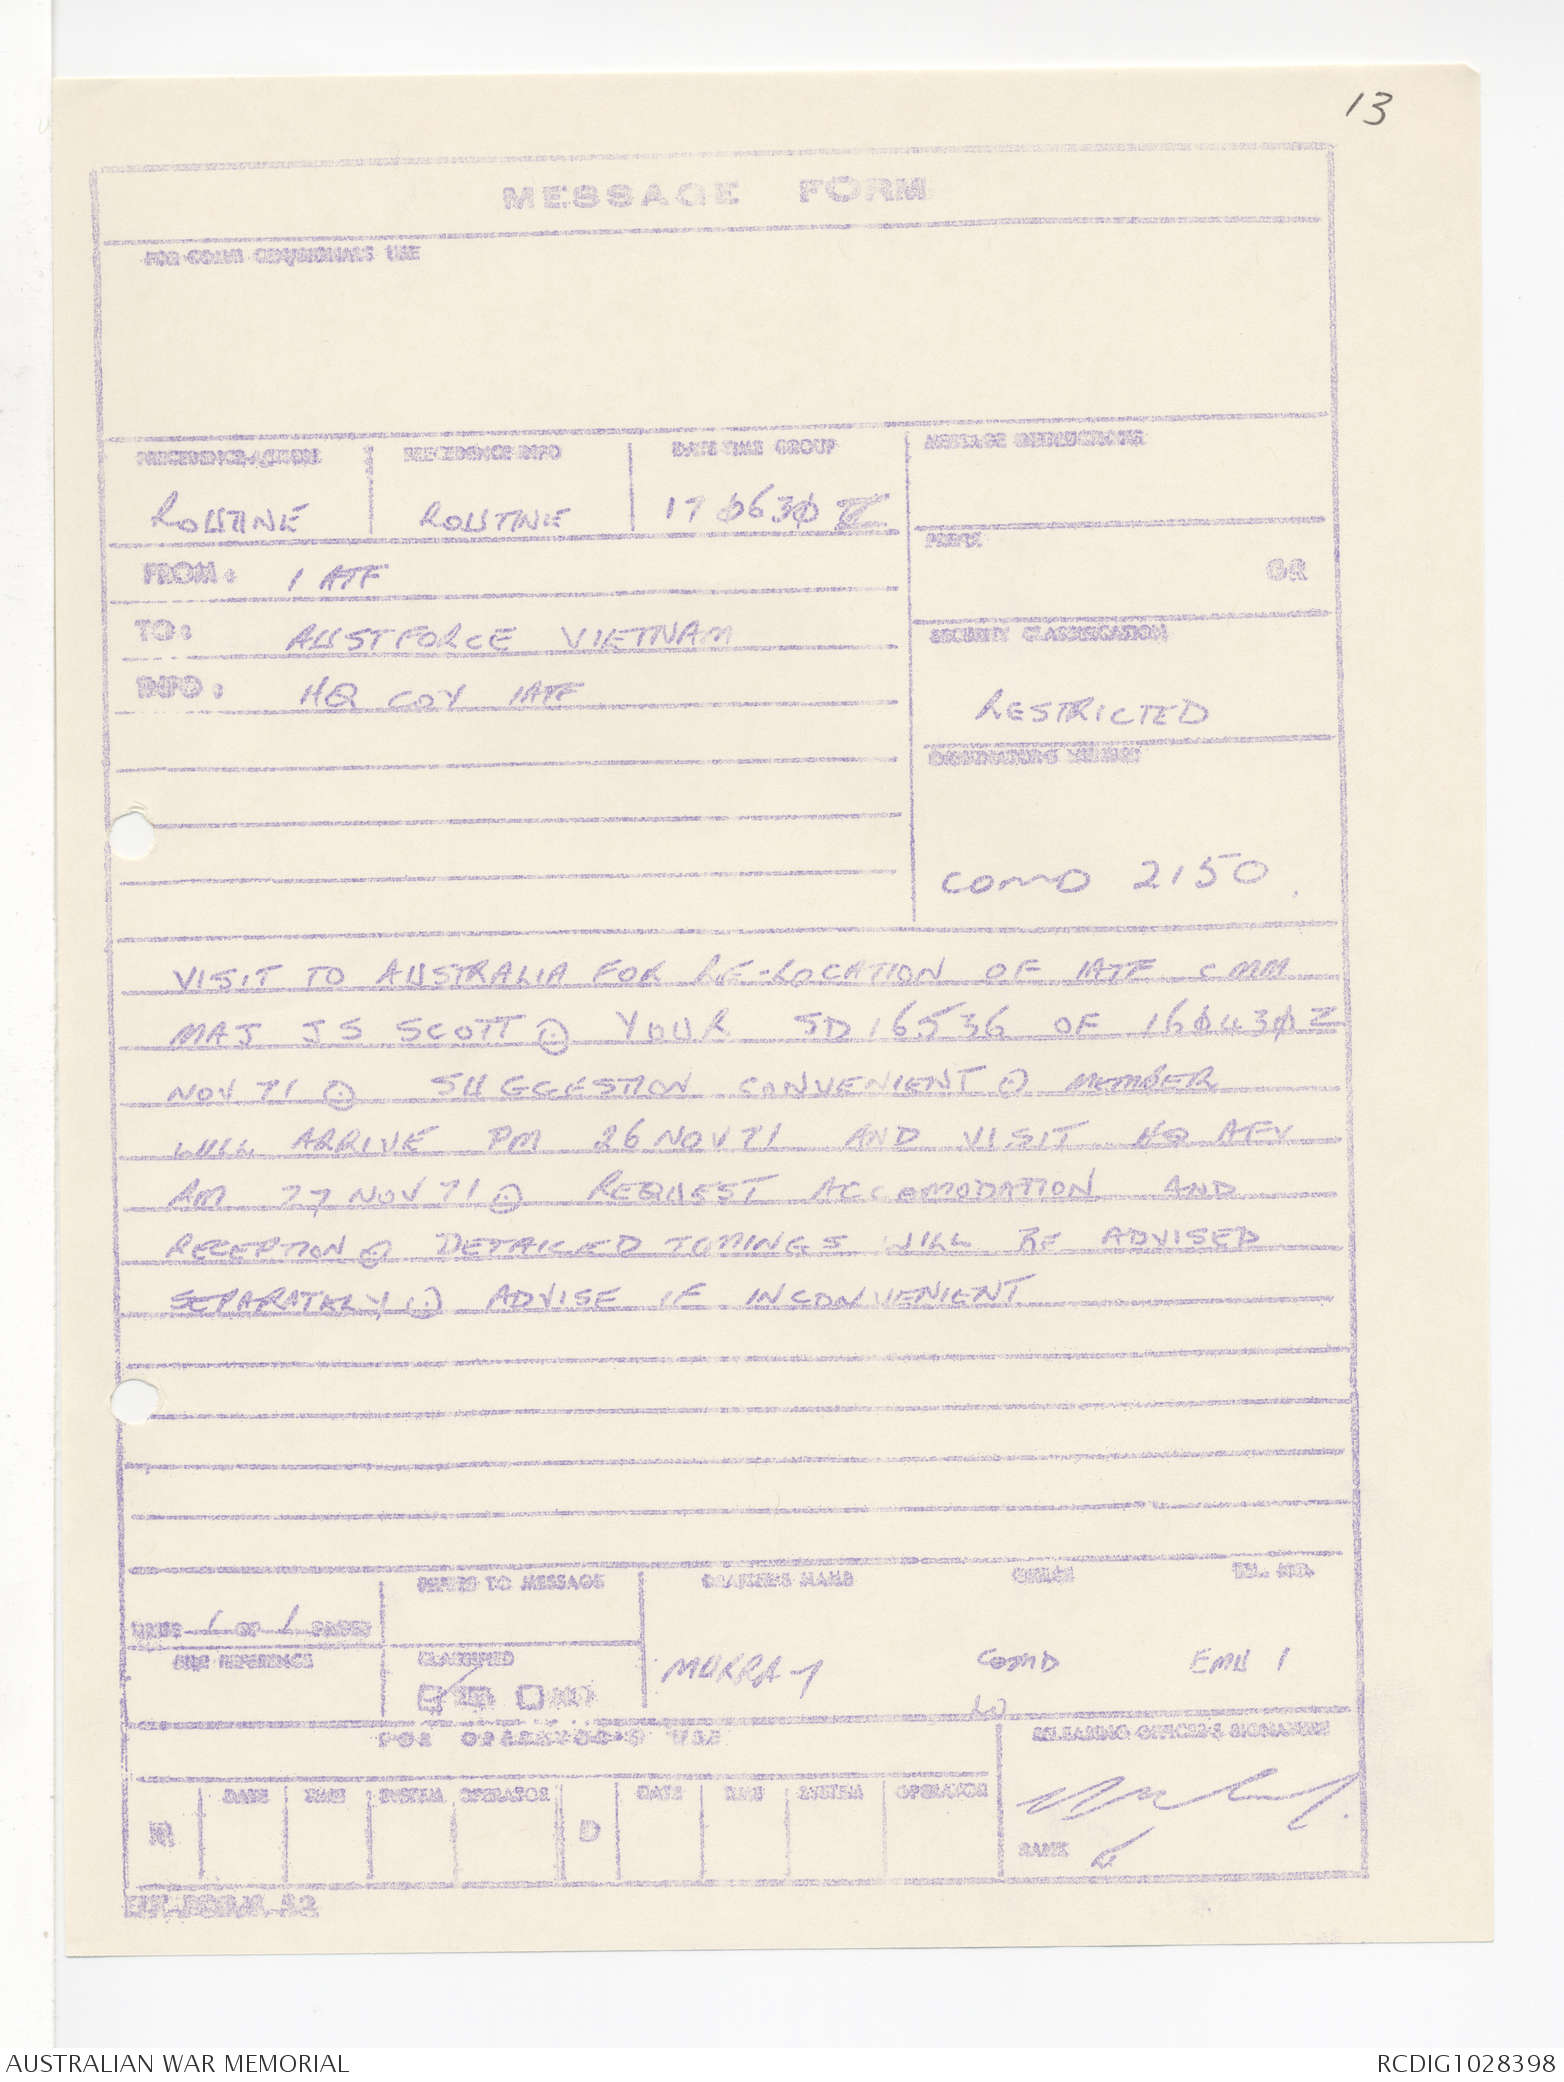 13
MESSAGE FORM
FOR COMM CEN/SIGNALS USE
PRECEDENCE-ACTION PRECEDENCE-INFO DATE-TIME GROUP MESSAGE INSTRUCTIONS
ROUTINE ROUTINE 17 0630 Z
PREFIX
GR
FROM: 1 ATF
TO: AUSTFORCE VIETNAM
SECURITY CLASSIFICATION
INFO: HQ COY 1ATF
RESTRICTED
ORIGINATORS NUMBER
COMD 2150
VISIT TO AUSTRALIA FOR RE-LOCATION OF 1ATF CMM
MAJ J S SCOTT ⊙ YOUR SD16536 OF 160430Z
NOV 71 ⊙ SUGGESTION CONVENIENT ⊙ MEMBER
WILL ARRIVE PM 26 NOV 71 AND VISIT HQ AFV
AM 27 NOV 71 ⊙ REQUEST ACCOMODATION AND
RECEPTION ⊙ DETAILED TIMINGS WILL BE ADVISED
SEPARATELY ⊙ ADVISE IF INCONVENIENT
REFERS TO MESSAGE DRAFTER'S NAME OFFICE TEL. NO.
PAGE 1 OF 1 PAGES
FILE REFERENCE CLASSIFIED
MURRAY COMD EMU 1
FOR OPERATOR'S USE
RELEASING OFFICER'S SIGNATURE
DATE TIME SYSTEM OPERATOR DATE TIME SYSTEM OPERATOR
R D
RANK
AUSTRALIAN WAR MEMORIAL RCDIG1028398